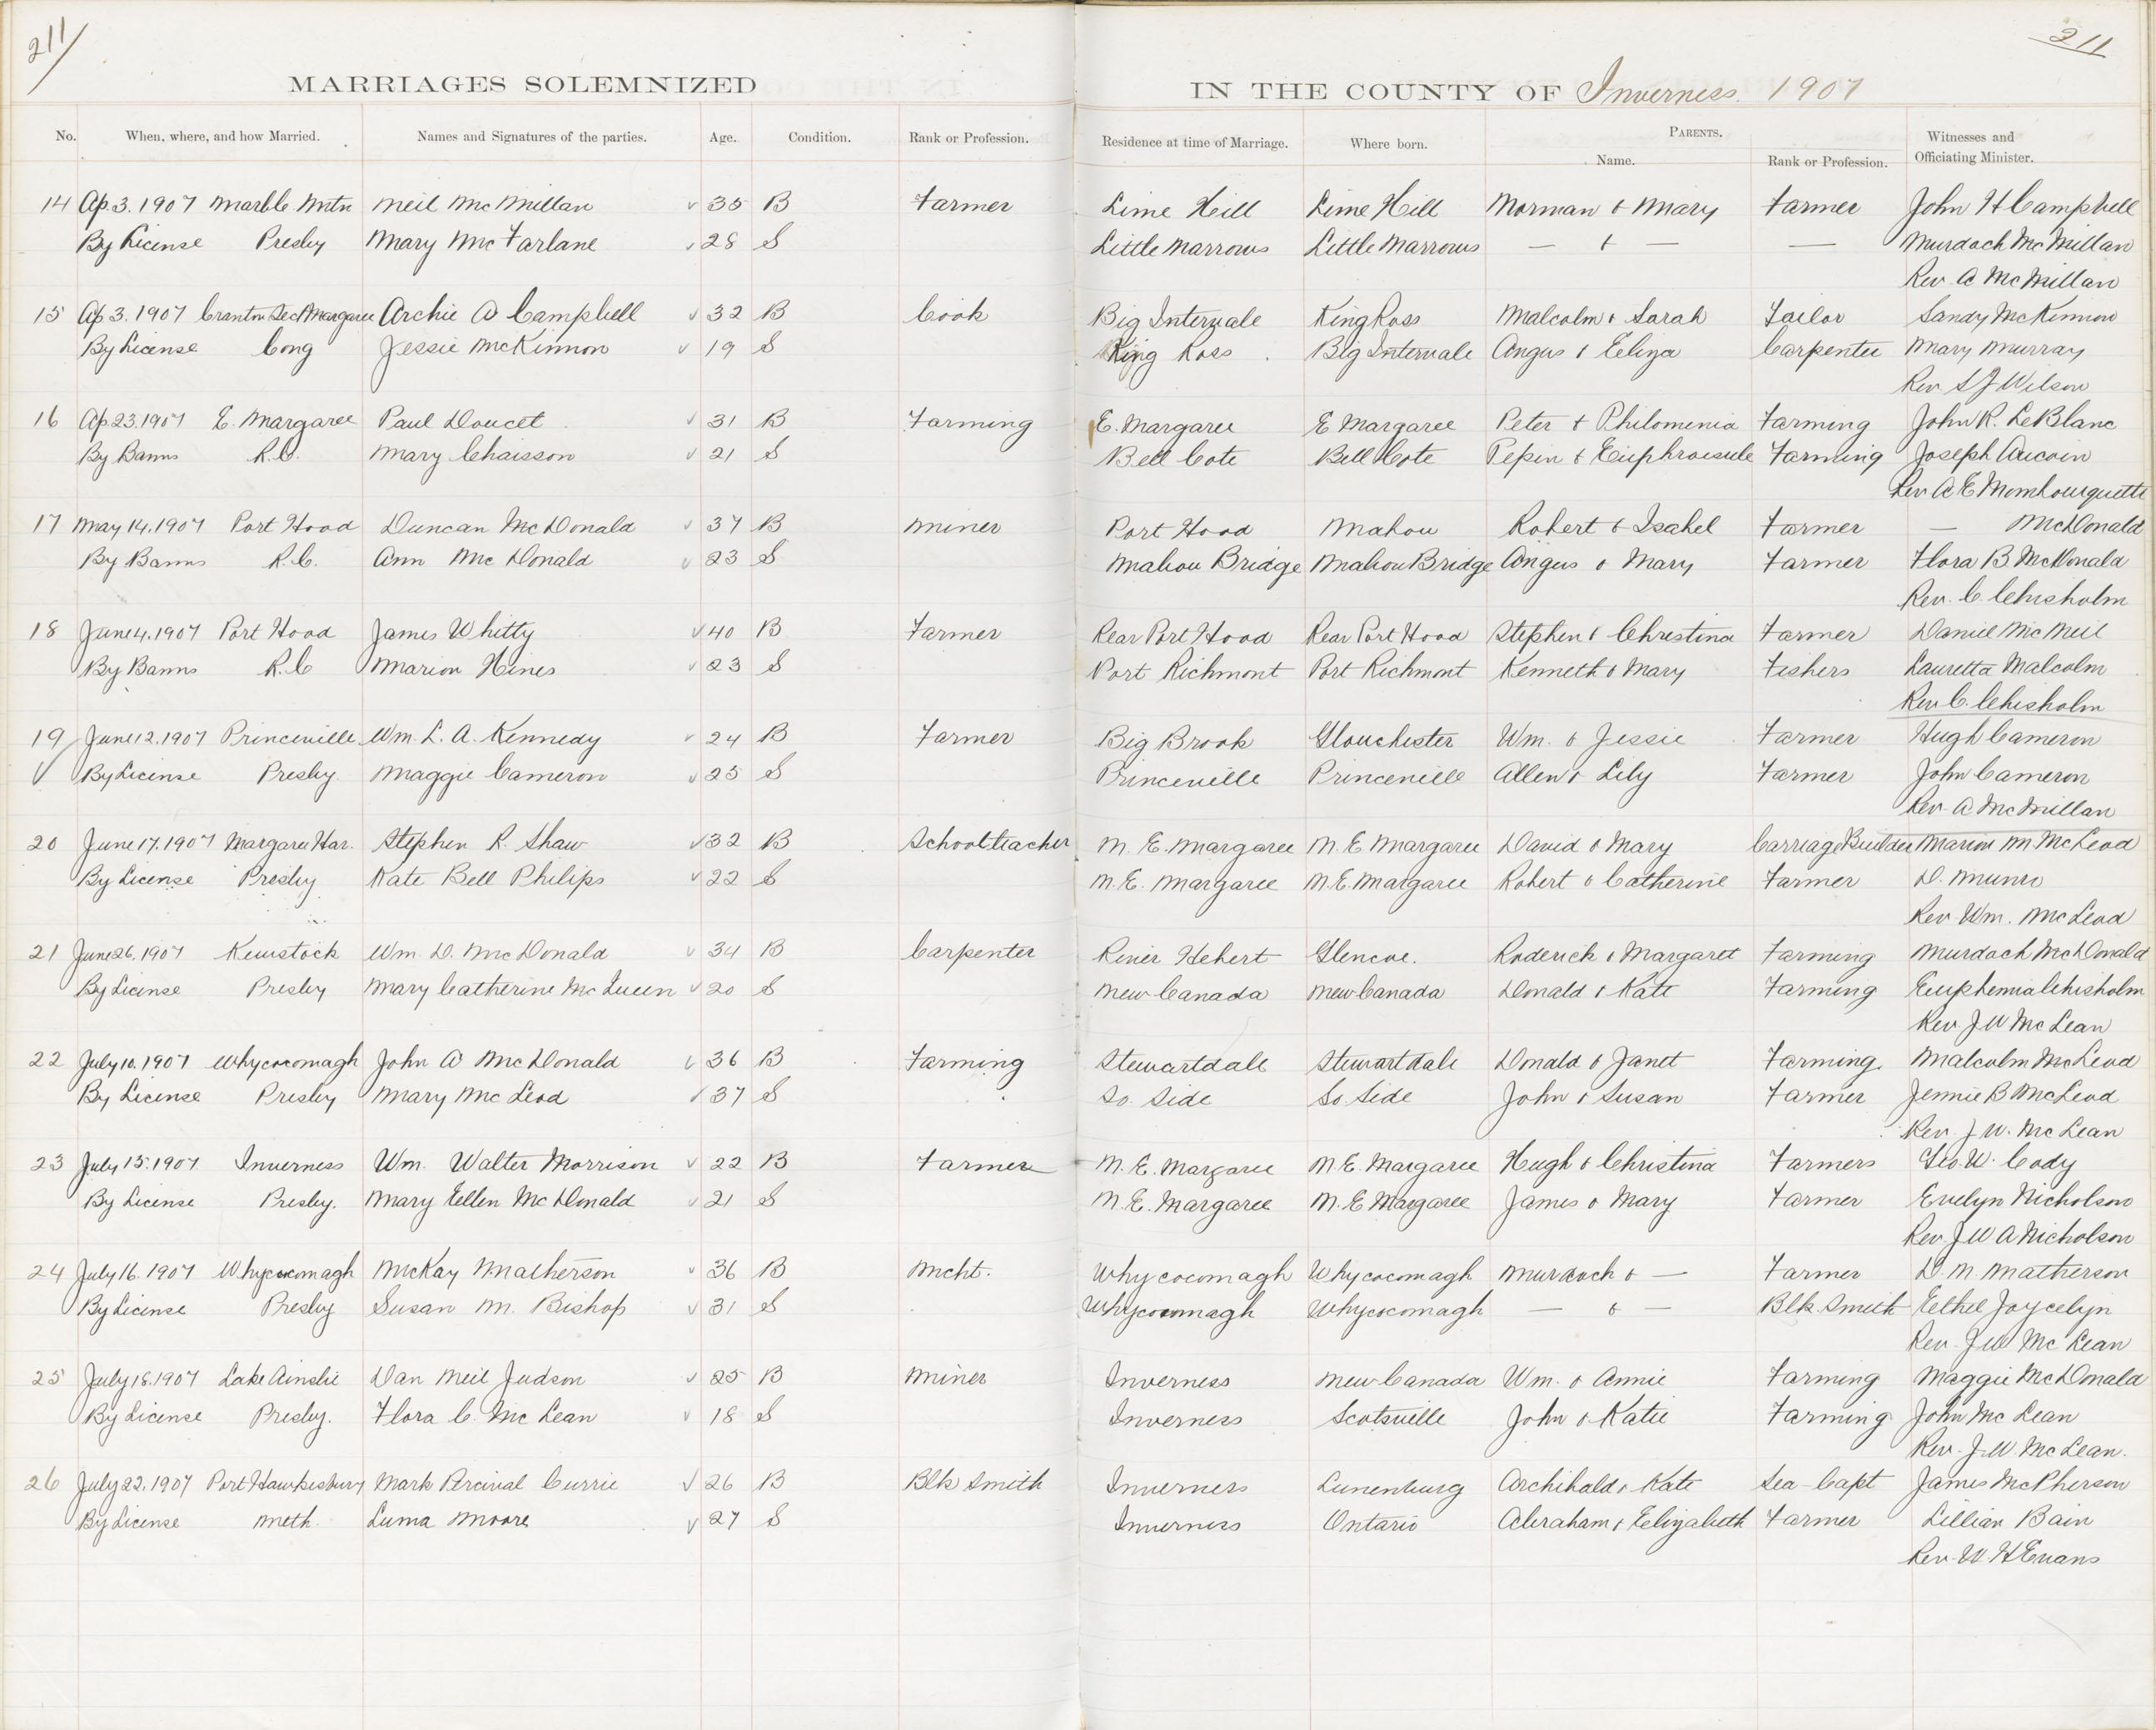 211/ 211
MARRIAGES SOLEMNIZED IN THE COUNTY OF Inverness 1907
No. When, where, and how Married. Names and Signatures of the parties. Age. Condition. Rank or Profession. Residence at time of Marriage. Where born. PARENTS. Name. Rank or Profession. Witnesses and Officiating Minister.
14 Ap. 3. 1907 Marble Mtn Neil McMillan 35 B Farmer Lime Hill Lime Hill Norman & Mary Farmer John H Campbell
By License Presby Mary McFarlane 28 S Little Narrows Little Narrows — & — — Murdoch McMillan
Rev A McMillan
15 Ap 3. 1907 Cranton Sec Margaree Archie A Campbell 32 B Cook Big Intervale King Ross Malcolm & Sarah Tailor Sandy McKinnon
By License Cong Jessie McKinnon 19 S King Ross Big Intervale Angus & Eliza Carpenter Mary Murray
Rev S J Wilson
16 Ap 23. 1907 E. Margaree Paul Doucet 31 B Farming E. Margaree E Margaree Peter & Philomenia Farming John R. LeBlanc
By Banns R.C. Mary Chaisson 21 S Bell Cote Bell Cote Pepin & Euphroisule Farming Joseph Aucoin
Rev A E Mombourquette
17 May 14. 1907 Port Hood Duncan McDonald 37 B Miner Port Hood Mabou Robert & Isabel Farmer — McDonald
By Banns R.C. Ann McDonald 23 S Mabou Bridge Mabou Bridge Angus & Mary Farmer Flora B. McDonald
Rev. C. Chisholm
18 June 4. 1907 Port Hood James Whitty 40 B Farmer Rear Port Hood Rear Port Hood Stephen & Christina Farmer Daniel McNeil
By Banns R.C Marion Hines 23 S Port Richmont Port Richmont Kenneth & Mary Fishers Lauretta Malcolm
Rev C. Chisholm
19 June 12. 1907 Princeville Wm. L. A. Kennedy 24 B Farmer Big Brook Glouchester Wm. & Jessie Farmer Hugh Cameron
By License Presby. Maggie Cameron 25 S Princeville Princeville Allen & Lily Farmer John Cameron
Rev A McMillan
20 June 17. 1907 Margaree Har. Stephen R. Shaw 32 B School teacher N. E. Margaree N. E. Margaree David & Mary Carriage Builder Marion M McLeod
By License Presby Kate Bell Philips 22 S N.E. Margaree N.E. Margaree Robert & Catherine Farmer D. Munro
Rev Wm. McLeod
21 June 26. 1907 Kewstock Wm. D. McDonald 34 B Carpenter River Hebert Glencoe. Roderick & Margaret Farming Murdoch McDonald
By License Presby Mary Catherine McLuen 20 S New Canada New Canada Donald & Kate Farming Euphemia Chisholm
Rev. J W McLean
22 July 10. 1907 Whycocomagh John A McDonald 36 B Farming Stewartdale Stewartdale Donald & Janet Farming. Malcolm McLeod
By License Presby Mary McLeod 37 S So. Side So. Side John & Susan Farmer Jennie B McLeod
Rev. J W. McLean
23 July 15. 1907 Inverness Wm. Walter Morrison 22 B Farmer N. E. Margaree N. E. Margaree Hugh & Christina Farmers Geo. W. Cody
By License Presby. Mary Ellen McDonald 21 S N. E. Margaree N. E Margaree James & Mary Farmer Evelyn Nicholson
Rev J W A Nicholson
24 July 16. 1907 Whycocomagh McKay Matherson 36 B Mcht. Whycocomagh Whycocomagh Murdoch & — Farmer D. M. Matherson
By License Presby Susan M. Bishop 31 S Whycocomagh Whycocomagh — & — Blk. Smith Ethel Joycelyn
Rev. J W McLean
25 July 18. 1907 Lake Ainslie Dan Neil Judson 25 B Miner Inverness New Canada Wm. & Annie Farming Maggie McDonald
By License Presby. Flora C. McLean 18 S Inverness Scotsville John & Katie Farming John McLean
Rev. J W McLean.
26 July 22. 1907 Port Hawkesbury Mark Percival Currie 26 B Blk Smith Inverness Lunenburg Archibald & Kate Sea-Capt James McPherson
By License Meth. Luma Moore 27 S Inverness Ontario Abraham & Elizabeth Farmer Lillian Bain
Rev. W H Evans